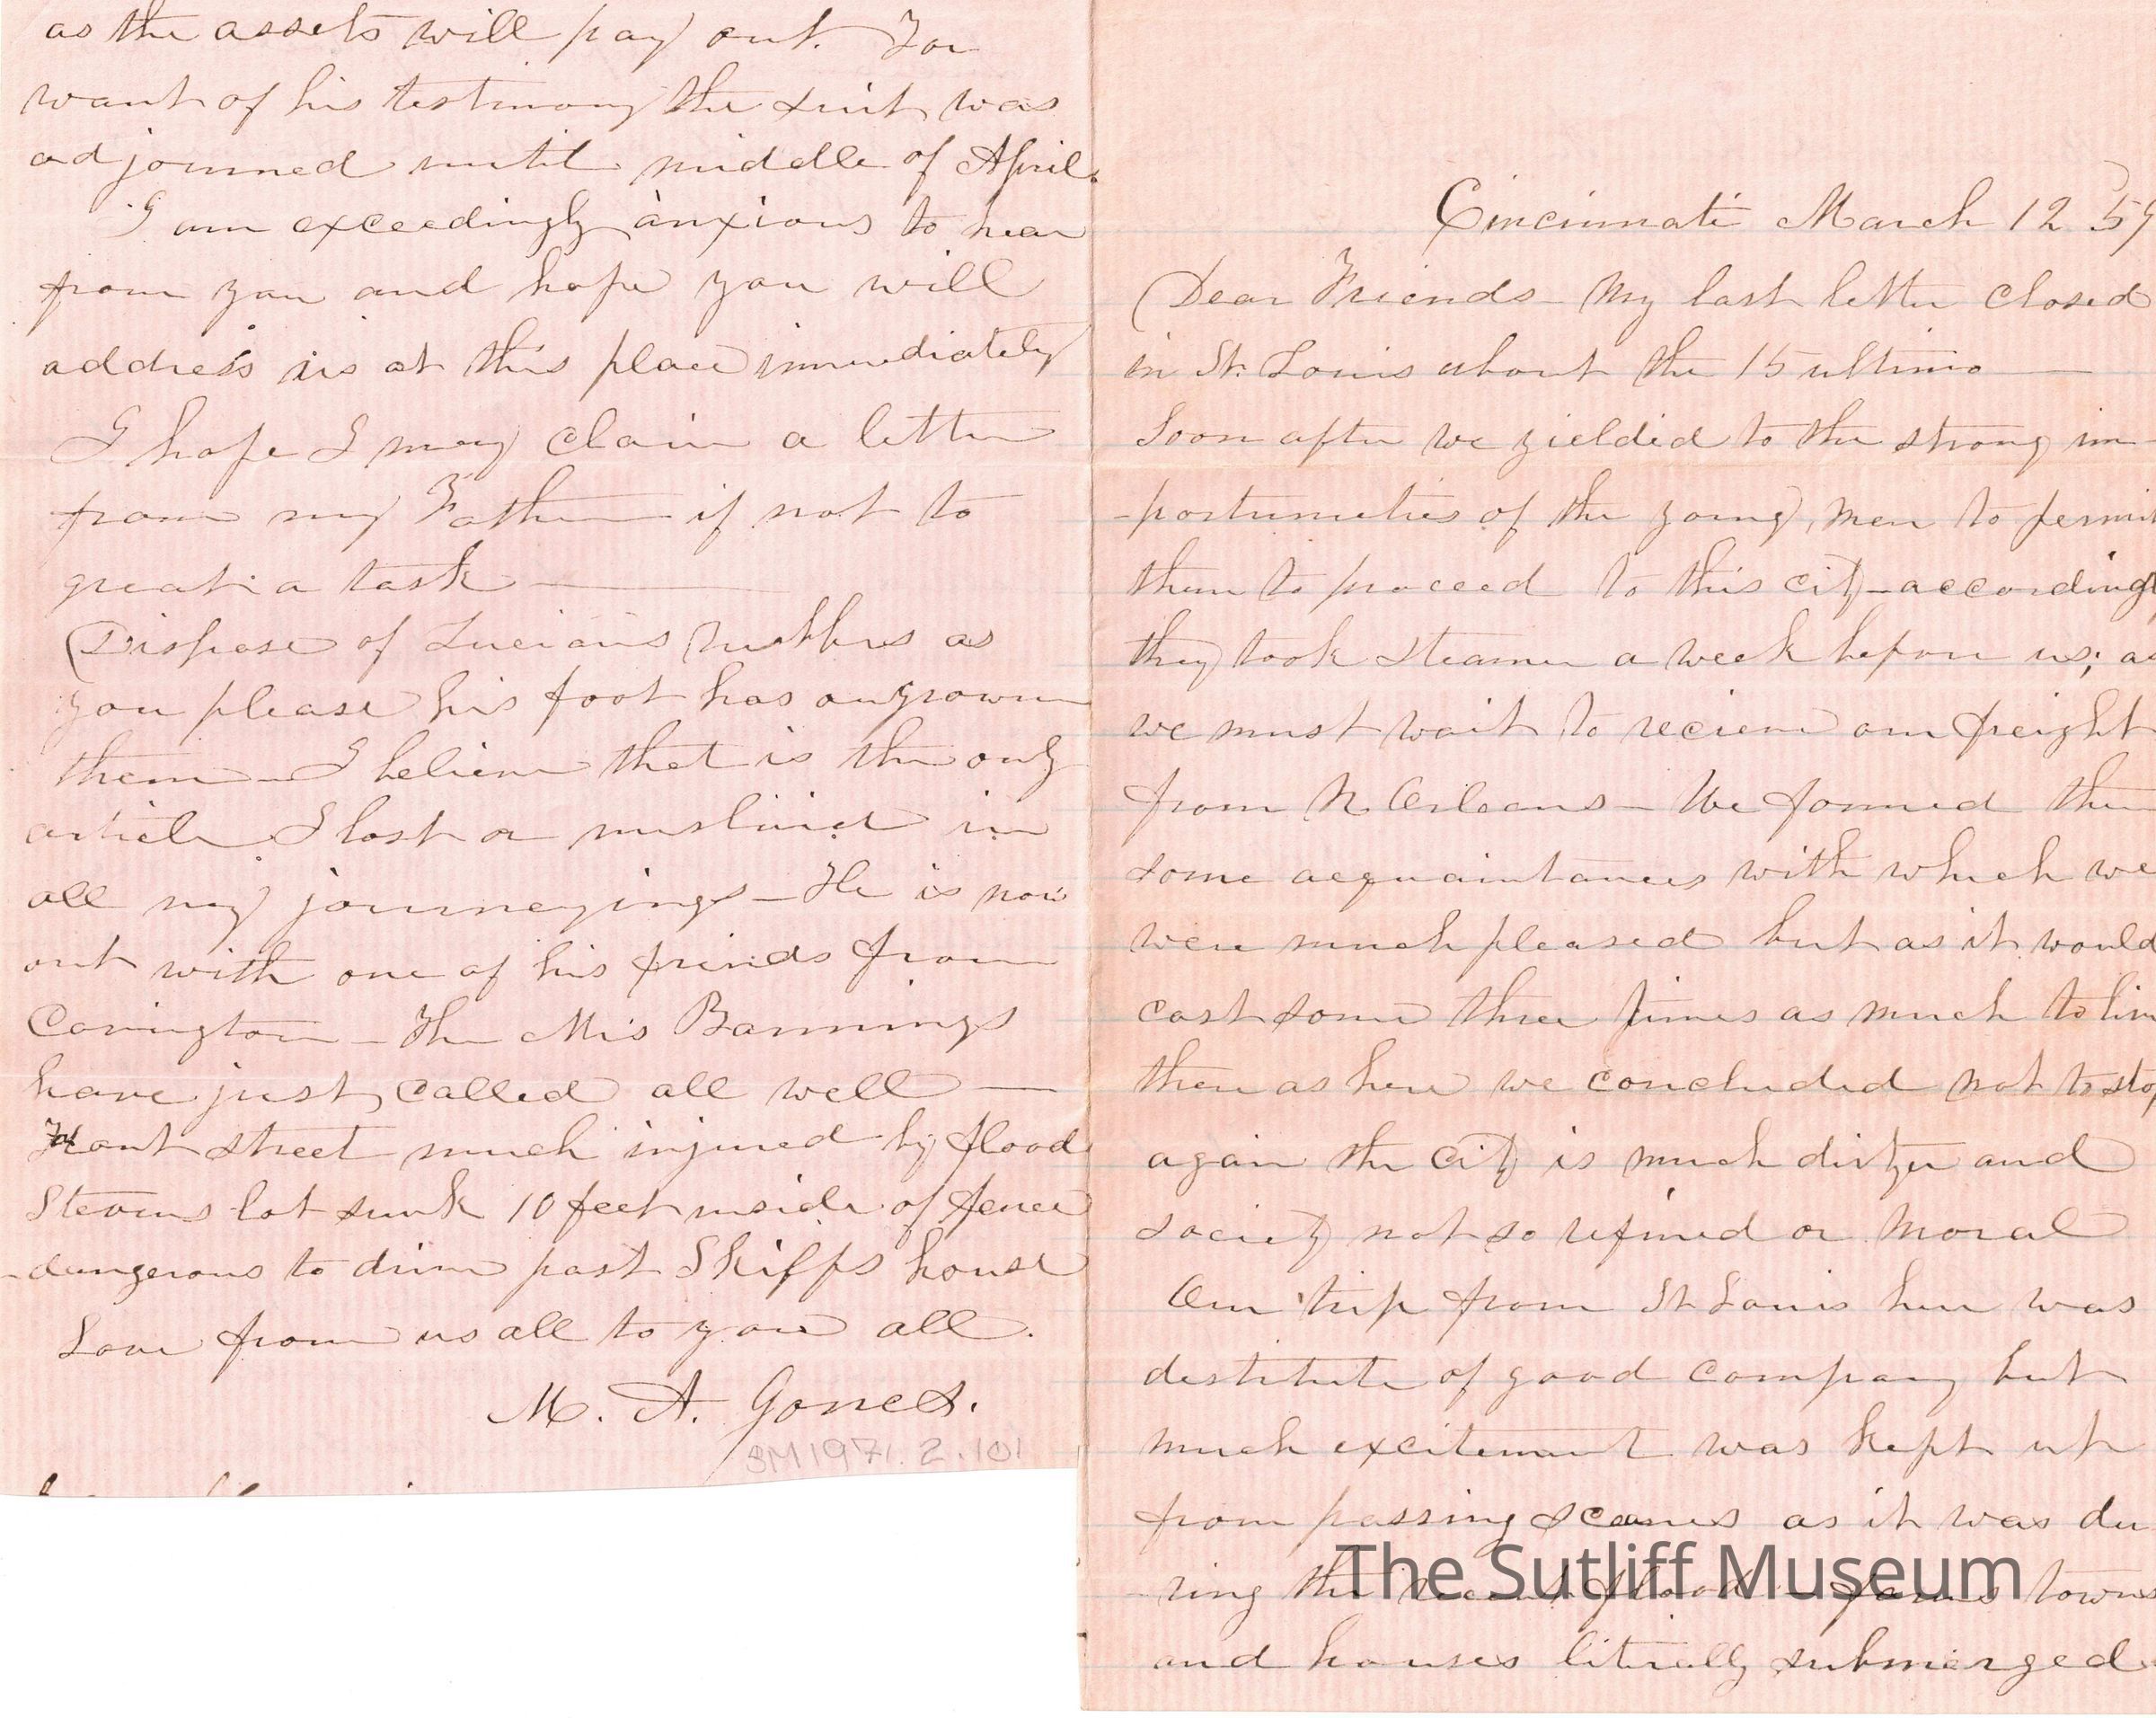 Cincinnati March 12 59
Dear Friends - My last letter closed
in St. Louis about the 15 ultimo
Soon after we yielded to the strong im
-portunities of the young men to permit
them to proceed to this city - accordingl
they took steamer a week before us; as
we must wait to recieve our freight
from N. Orleans - We formed there
some acquaintances with which we
were much pleased but as it would
cost some three times as much to live
there as here we concluded not to stop
again the city is much dirtyer and
society not so refined or moral
Our trip from St Louis here was
destitute of good company but
much excitement was kept up
from passing scenes as it was du
-ring the recent flood - farms towns
and houses literally submerged
as the assets will pay out. For
want of his testimony the suit was
adjourned until middle of April.
I am exceedingly anxious to hear
from you and hope you will
address us at this place immediately
I hope I may claim a letter
from my Father if not to
great a task
Dispose of Lucians Rubbers as
you please his foot has ougrown
them - I believe that is the only
article I lost or mislaid in
all my journeyings - He is now
out with one of his friends from
Covington - The Mis Bannings
have just called all well
Front street much injured by flood
Stevens lot sunk 10 feet inside of fence
dangerous to drive past Skiffs house
Love from us all to you all.
M. A. Jones.
SM1971.2.101
The Sutliff Museum